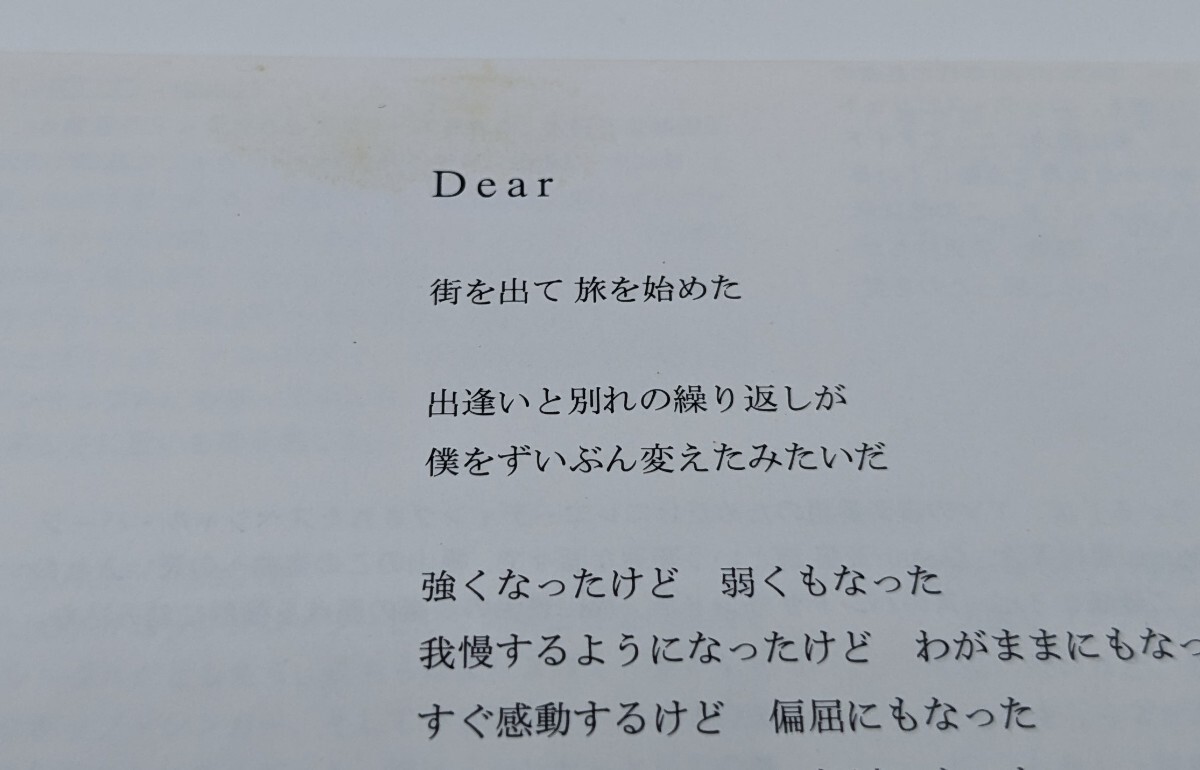 Dear
街を出て 旅を始めた
出逢いと別れの繰り返しが
僕をずいぶん変えたみたいだ
強くなったけど　弱くもなった
我慢するようになったけど　わがままにもなっ
すぐ感動するけど　偏屈にもなった